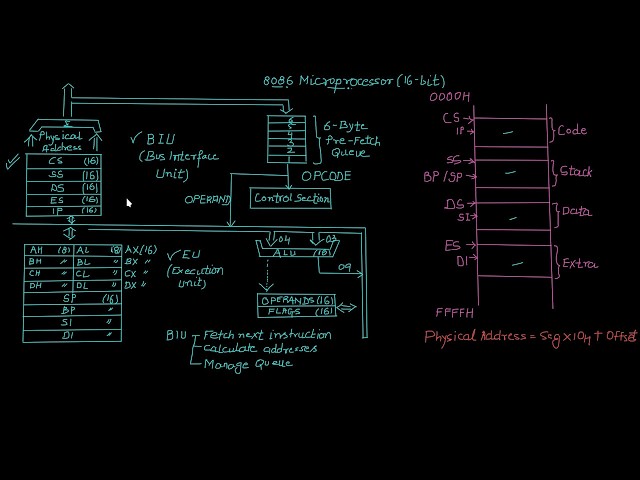 8086 Microprocessor (16-bit)
Σ
Physical
Address
CS (16)
SS (16)
DS (16)
ES (16)
IP (16)
✓ BIU
(Bus Interface
Unit)
6
5
4
3
2
1
6-Byte
Pre-Fetch
Queue
OPCODE
OPERAND
Control Section
AH (8) AL (8) AX(16)
BH " BL " BX "
CH " CL " CX "
DH " DL " DX "
SP (16)
BP "
SI "
DI "
✓ EU
(Execution
Unit)
04 03
ALU (16)
09
OPERANDS(16)
FLAGS (16)
BIU Fetch next instruction
Calculate addresses
Manage Queue
0000H
CS
IP
Code
SS
BP/SP
Stack
DS
SI
Data
ES
DI
Extra
FFFFH
Physical Address = Seg×10H + Offset